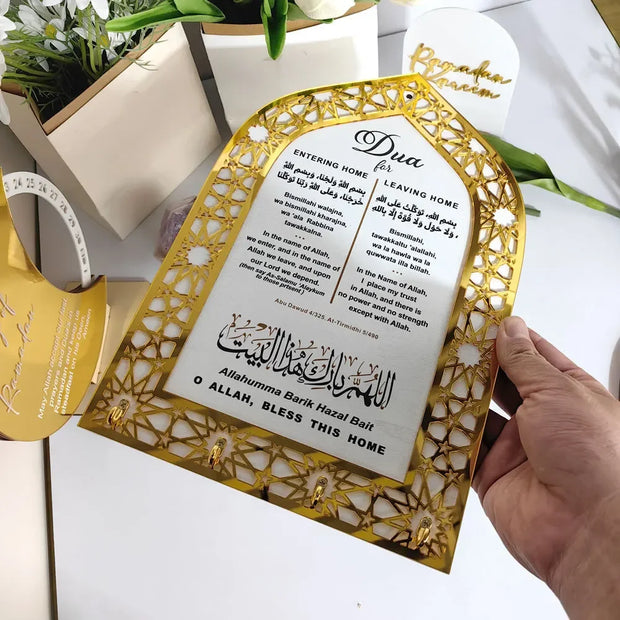 Dua
for
ENTERING HOME
بِسْمِ اللهِ وَلَجْنَا، وَبِسْمِ اللهِ
خَرَجْنَا، وَعَلَى اللهِ رَبِّنَا تَوَكَّلْنَا
Bismillahi walajna,
wa bismillahi kharajna,
wa 'ala Rabbina
tawakkalna.
In the name of Allah,
we enter, and in the name of
Allah we leave, and upon
our Lord we depend.
(then say As-Salamu 'Alaykum
to those present)
LEAVING HOME
بِسْمِ اللهِ، تَوَكَّلْتُ عَلَى اللهِ
، وَلَا حَوْلَ وَلَا قُوَّةَ إِلَّا بِاللهِ
Bismillahi,
tawakkaltu 'alallahi,
wa la hawla wa la
quwwata illa billah.
In the Name of Allah,
I place my trust
in Allah, and there is
no power and no strength
except with Allah.
Abu Dawud 4/325, At-Tirmidhi 5/490
اللهم بارك هذا البيت
Allahumma Barik Hazal Bait
O ALLAH, BLESS THIS HOME
Ramadan
Kareem
23 24 25
Ramadan